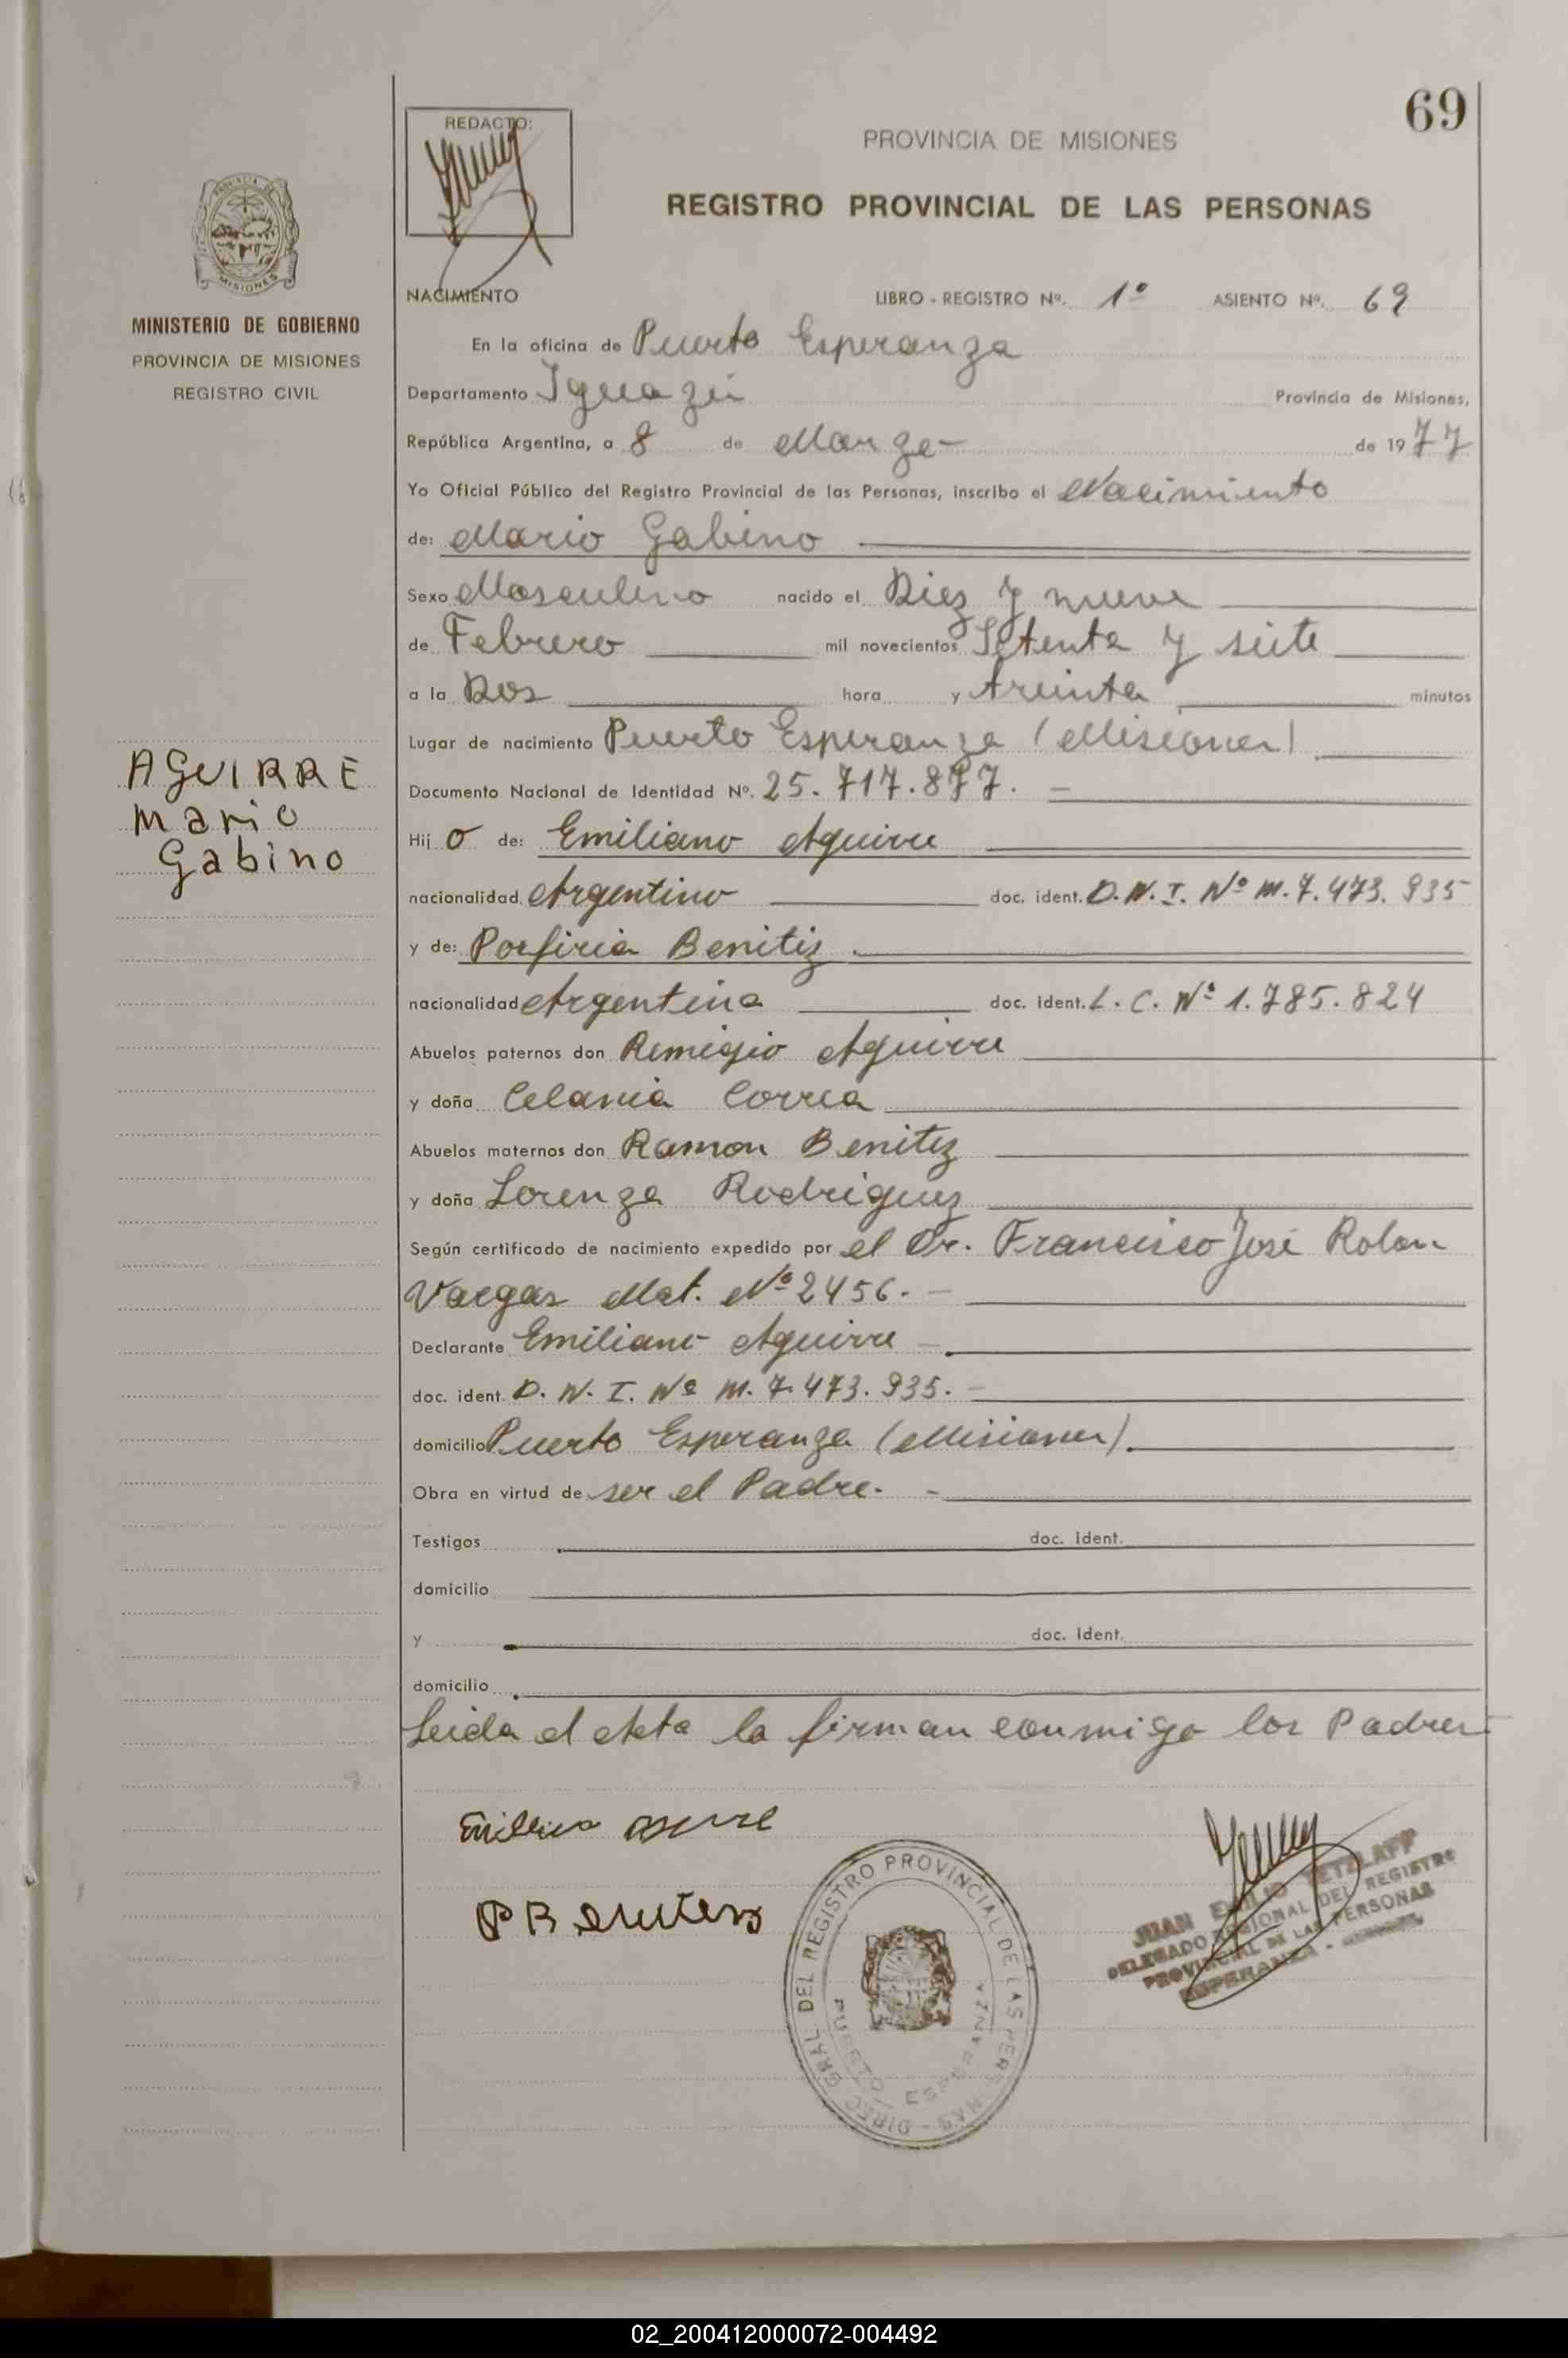 69
REDACTO:
PROVINCIA DE MISIONES
REGISTRO PROVINCIAL DE LAS PERSONAS
PROVINCIA DE
MISIONES
MINISTERIO DE GOBIERNO
PROVINCIA DE MISIONES
REGISTRO CIVIL
NACIMIENTO LIBRO - REGISTRO Nº. 1º ASIENTO Nº. 69
En la oficina de Puerto Esperanza
Departamento Iguazú Provincia de Misiones,
República Argentina, a 8 de Marzo - de 1977
Yo Oficial Público del Registro Provincial de las Personas, inscribo el Nacimiento
de: Mario Gabino
Sexo Masculino nacido el Diez y nueve
de Febrero mil novecientos Setenta y siete
a la Dos hora y treinta minutos
Lugar de nacimiento Puerto Esperanza (Misiones)
AGUIRRE
Mario
Gabino
Documento Nacional de Identidad Nº. 25.717.877. -
Hij o de: Emiliano Aguirre
nacionalidad Argentino doc. ident. D.N.I. Nº M.7.473.935
y de: Porfiria Benitiz
nacionalidad Argentina doc. ident. L.C. Nº 1.785.824
Abuelos paternos don Remigio Aguirre
y doña Celania Correa
Abuelos maternos don Ramon Benitez
y doña Lorenza Rodriguez
Según certificado de nacimiento expedido por el Dr. Francisco José Rolon
Vargas Mat. Nº 2456. -
Declarante Emiliano Aguirre -
doc. ident. D.N.I. Nº M.7.473.935. -
domicilio Puerto Esperanza (Misiones).
Obra en virtud de ser el Padre. -
Testigos doc. ident.
domicilio
y doc. ident.
domicilio
Leida el Acta la firman conmigo los Padres
P Benites
DIREC. GRAL DEL REGISTRO PROVINCIAL DE LAS PERSONAS
PUERTO ESPERANZA
JUAN EMILIO TETZLAFF
DELEGADO REGIONAL DEL REGISTRO
PROVINCIAL DE LAS PERSONAS
ESPERANZA -
02_200412000072-004492